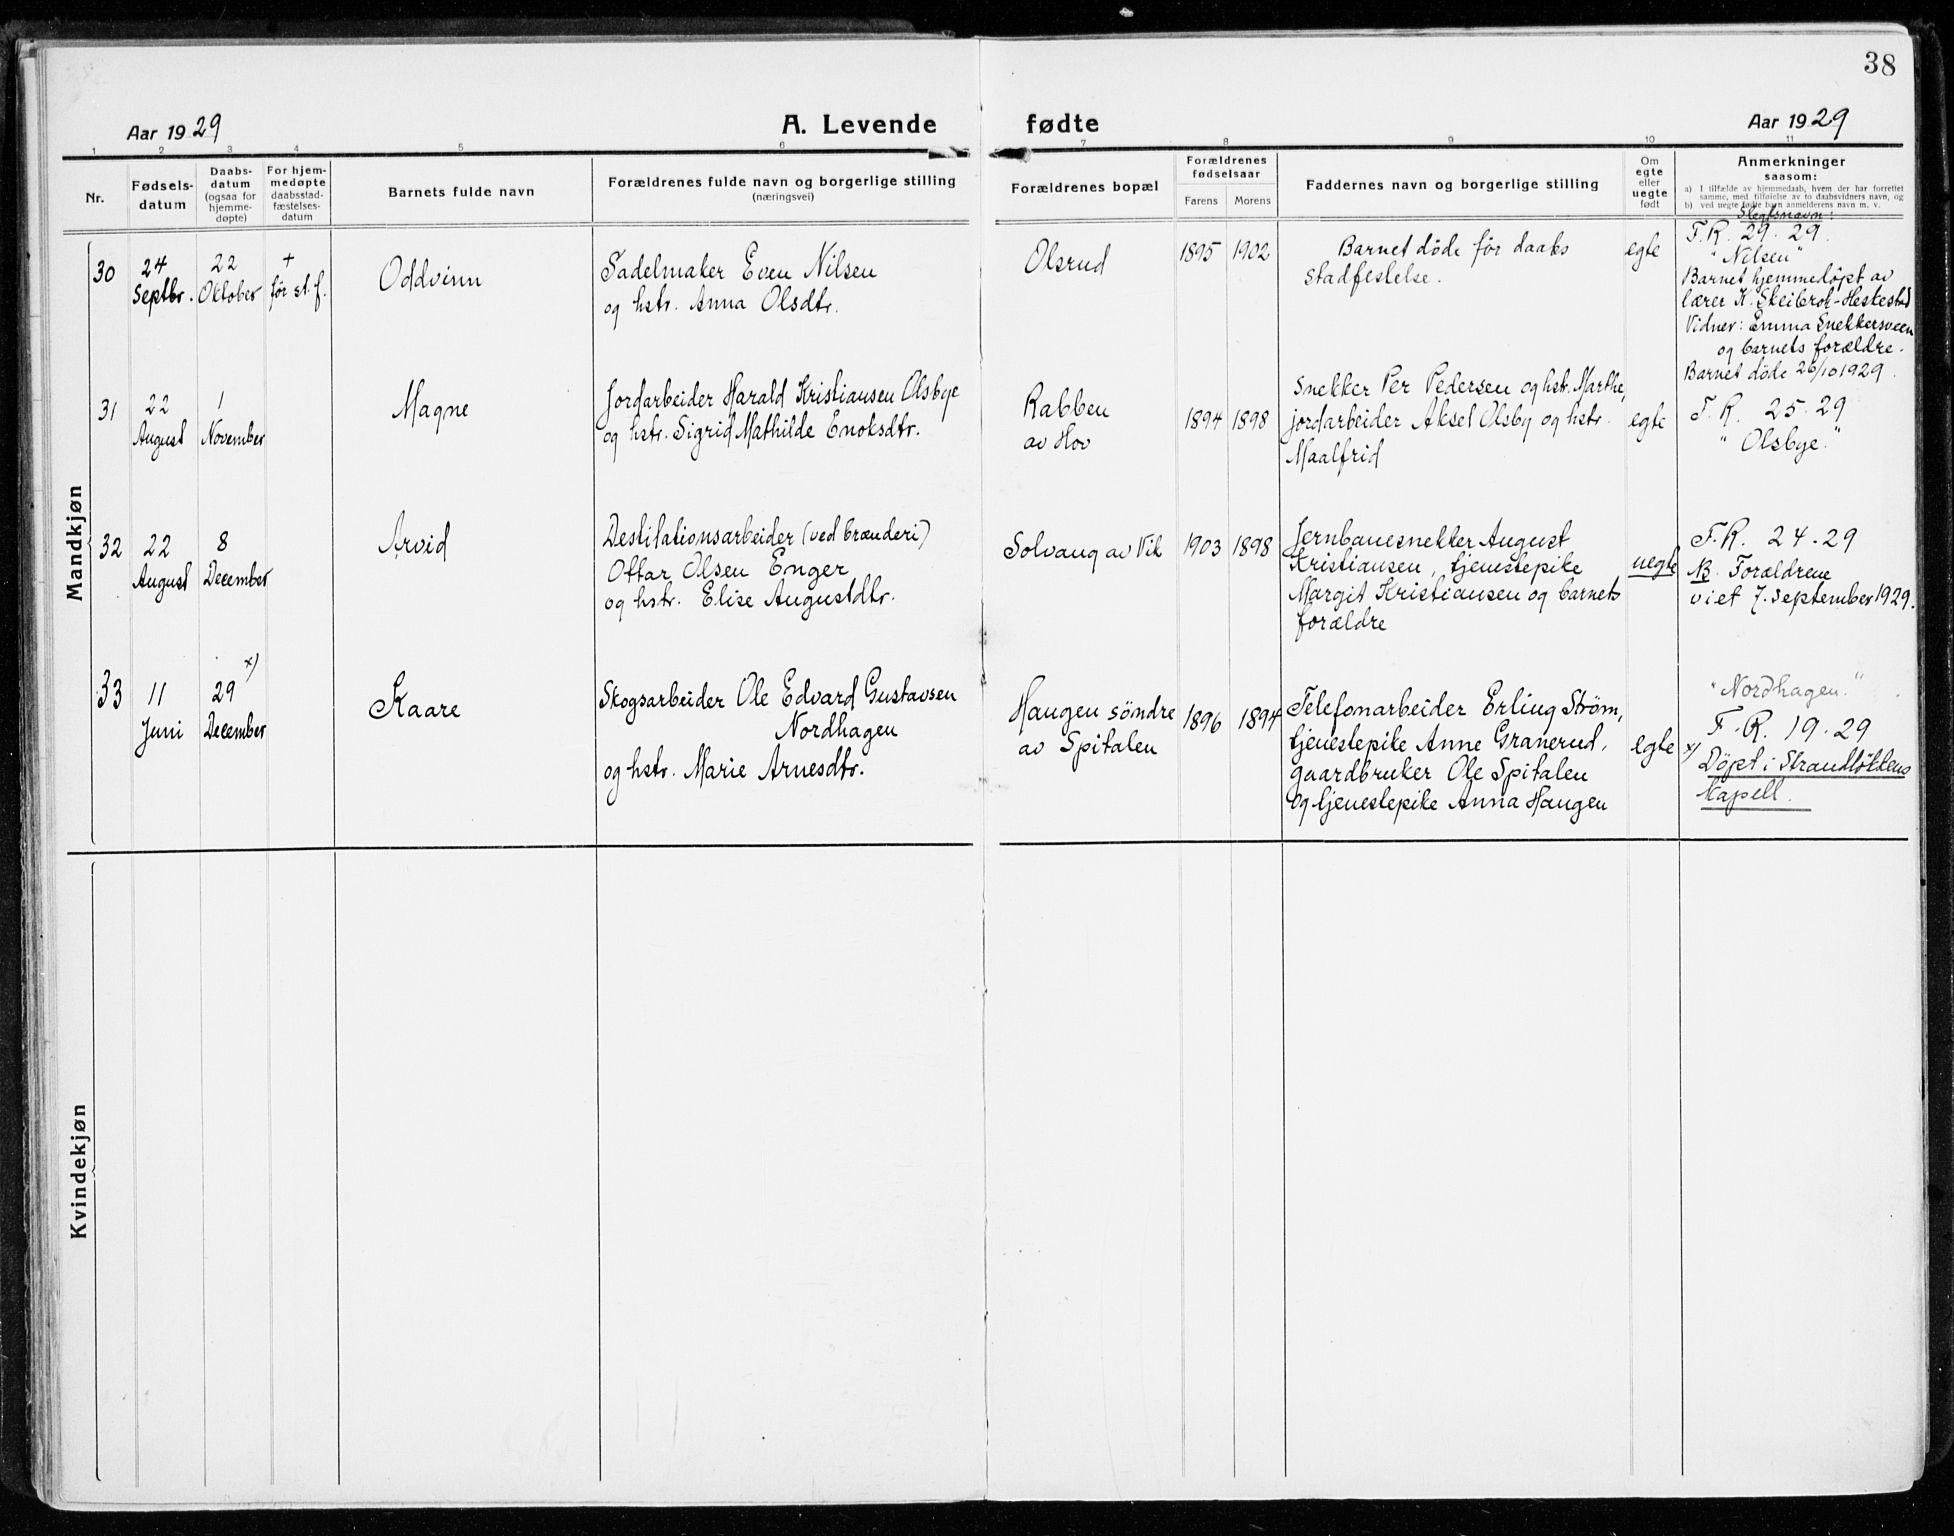 38
Aar 1929
A. Levende fødte
Aar 1929
1 2 3 4 5 6 7 8 9 10 11
Nr.
Fødsels-
datum
Daabs-
datum
(ogsaa for
hjemme-
døpte)
For hjem-
medøpte
daabsstad-
fæstelses-
datum
Barnets fulde navn
Forældrenes fulde navn og borgerlige stilling
(næringsvei)
Forældrenes bopæl
Forældrenes
fødselsaar
Farens Morens
Faddernes navn og borgerlige stilling
Om
egte
eller
uegte
født
Anmerkninger
saasom:
a) I tilfælde av hjemmedaab, hvem der har forrettet
samme, med tilføielse av to daabsvidners navn, og
b) ved uegte fødte barn anmelderens navn m. v.
Mandkjøn
30
24
Septbr.
22
Oktober
+
før st.f.
Oddvinn
Sadelmaker Even Nilsen
og hstr. Anna Olsdtr.
Olsrud
1895 1902
Barnet døde før daabs
stadfestelse.
egte
Slegtsnavn:
F.R. 29.29.
"Nilsen"
Barnet hjemmedøpt av
lærer K. Skeibrok-Heskestad
Vidner: Emma Snekkersveen
og barnets forældre.
Barnet døde 26/10 1929.
31
22
August
1
November
Magne
Jordarbeider Harald Kristiansen Olsbye
og hstr. Sigrid Mathilde Enoksdtr.
Rabben
av Hov
1894 1898
Snekker Per Pedersen og hst. Marthe,
jordarbeider Aksel Olsby og hstr.
Maalfrid
egte
F.R. 25.29
"Olsbye."
32
22
August
8
December
Arvid
Destilationsarbeider (ved brænderi)
Ottar Olsen Enger
og hstr. Elise Augustdtr.
Solvang av Vik
1903 1898
Jernbanesnekker August
Kristiansen, tjenestepike
Margit Kristiansen og barnets
forældre
uegte
F.R. 24.29
NB. Forældrene
viet 7. september 1929.
33
11
Juni
29 x)
December
Kaare
Skogsarbeider Ole Edvard Gustavsen
Nordhagen
og hstr. Marie Arnesdtr.
Haugen söndre
av Spitalen
1896 1894
Telefonarbeider Erling Strøm,
tjenestepike Anne Granerud,
gaardbruker Ole Spitalen
og tjenestepike Anna Haugen
egte
"Nordhagen."
F.R. 19.29
x) Döpt i Strandlökkens
Kapell.
Kvindekjøn